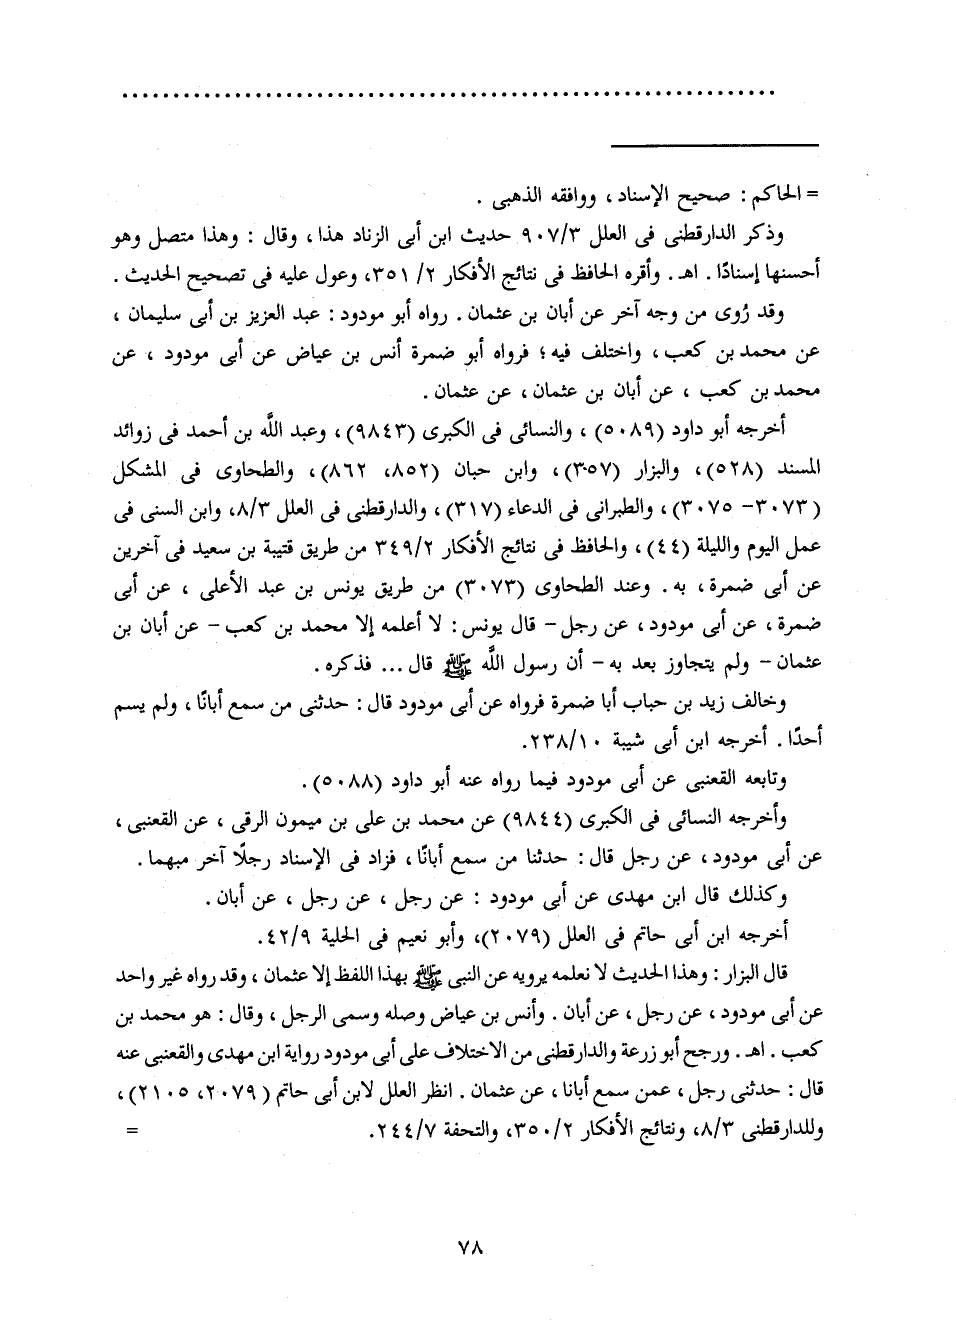 ................................................................
= الحاكم : صحيح الإسناد ، ووافقه الذهبى .
وذكر الدارقطنى فى العلل ٩٠٧/٣ حديث ابن أبى الزناد هذا ، وقال : وهذا متصل وهو
أحسنها إسنادًا . اهـ . وأقره الحافظ فى نتائج الأفكار ٢/ ٣٥١، وعول عليه فى تصحيح الحديث .
وقد رُوى من وجه آخر عن أبان بن عثمان . رواه أبو مودود : عبد العزيز بن أبى سليمان ،
عن محمد بن كعب ، واختلف فيه ؛ فرواه أبو ضمرة أنس بن عياض عن أبى مودود ، عن
محمد بن كعب ، عن أبان بن عثمان ، عن عثمان .
أخرجه أبو داود (٥٠٨٩) ، والنسائى فى الكبرى (٩٨٤٣)، وعبد الله بن أحمد فى زوائد
المسند (٥٢٨)، والبزار (٣٥٧)، وابن حبان (٨٥٢، ٨٦٢)، والطحاوى فى المشكل
(٣٠٧٣- ٣٠٧٥) ، والطبرانى فى الدعاء (٣١٧) ، والدارقطنى فى العلل ٨/٣، وابن السنى فى
عمل اليوم والليلة (٤٤) ، والحافظ فى نتائج الأفكار ٣٤٩/٢ من طريق قتيبة بن سعيد فى آخرين
عن أبى ضمرة ، به . وعند الطحاوى (٣٠٧٣) من طريق يونس بن عبد الأعلى ، عن أبى
ضمرة ، عن أبى مودود ، عن رجل - قال يونس : لا أعلمه إلا محمد بن كعب - عن أبان بن
عثمان - ولم يتجاوز بعد به - أن رسول اللَّه ﷺ قال ... فذكره .
وخالف زيد بن حباب أبا ضمرة فرواه عن أبى مودود قال : حدثنى من سمع أبانًا ، ولم يسم
أحدًا . أخرجه ابن أبى شيبة ٢٣٨/١٠.
وتابعه القعنبى عن أبى مودود فيما رواه عنه أبو داود (٥٠٨٨) .
وأخرجه النسائى فى الكبرى (٩٨٤٤) عن محمد بن على بن ميمون الرقى ، عن القعنبى ،
عن أبى مودود ، عن رجل قال : حدثنا من سمع أبانًا ، فزاد فى الإسناد رجلًا آخر مبهما .
وكذلك قال ابن مهدى عن أبى مودود : عن رجل ، عن رجل ، عن أبان .
أخرجه ابن أبى حاتم فى العلل (٢٠٧٩)، وأبو نعيم فى الحلية ٤٢/٩.
قال البزار : وهذا الحديث لا نعلمه يرويه عن النبى ﷺ بهذا اللفظ إلا عثمان ، وقد رواه غير واحد
عن أبى مودود ، عن رجل ، عن أبان . وأنس بن عياض وصله وسمى الرجل ، وقال : هو محمد بن
كعب . اهـ . ورجح أبو زرعة والدارقطنى من الاختلاف على أبى مودود رواية ابن مهدى والقعنبى عنه
قال : حدثنى رجل ، عمن سمع أبانا ، عن عثمان . انظر العلل لابن أبى حاتم (٢٠٧٩، ٢١٠٥) ،
وللدارقطنى ٨/٣، ونتائج الأفكار ٣٥٠/٢، والتحفة ٢٤٤/٧. =
٧٨